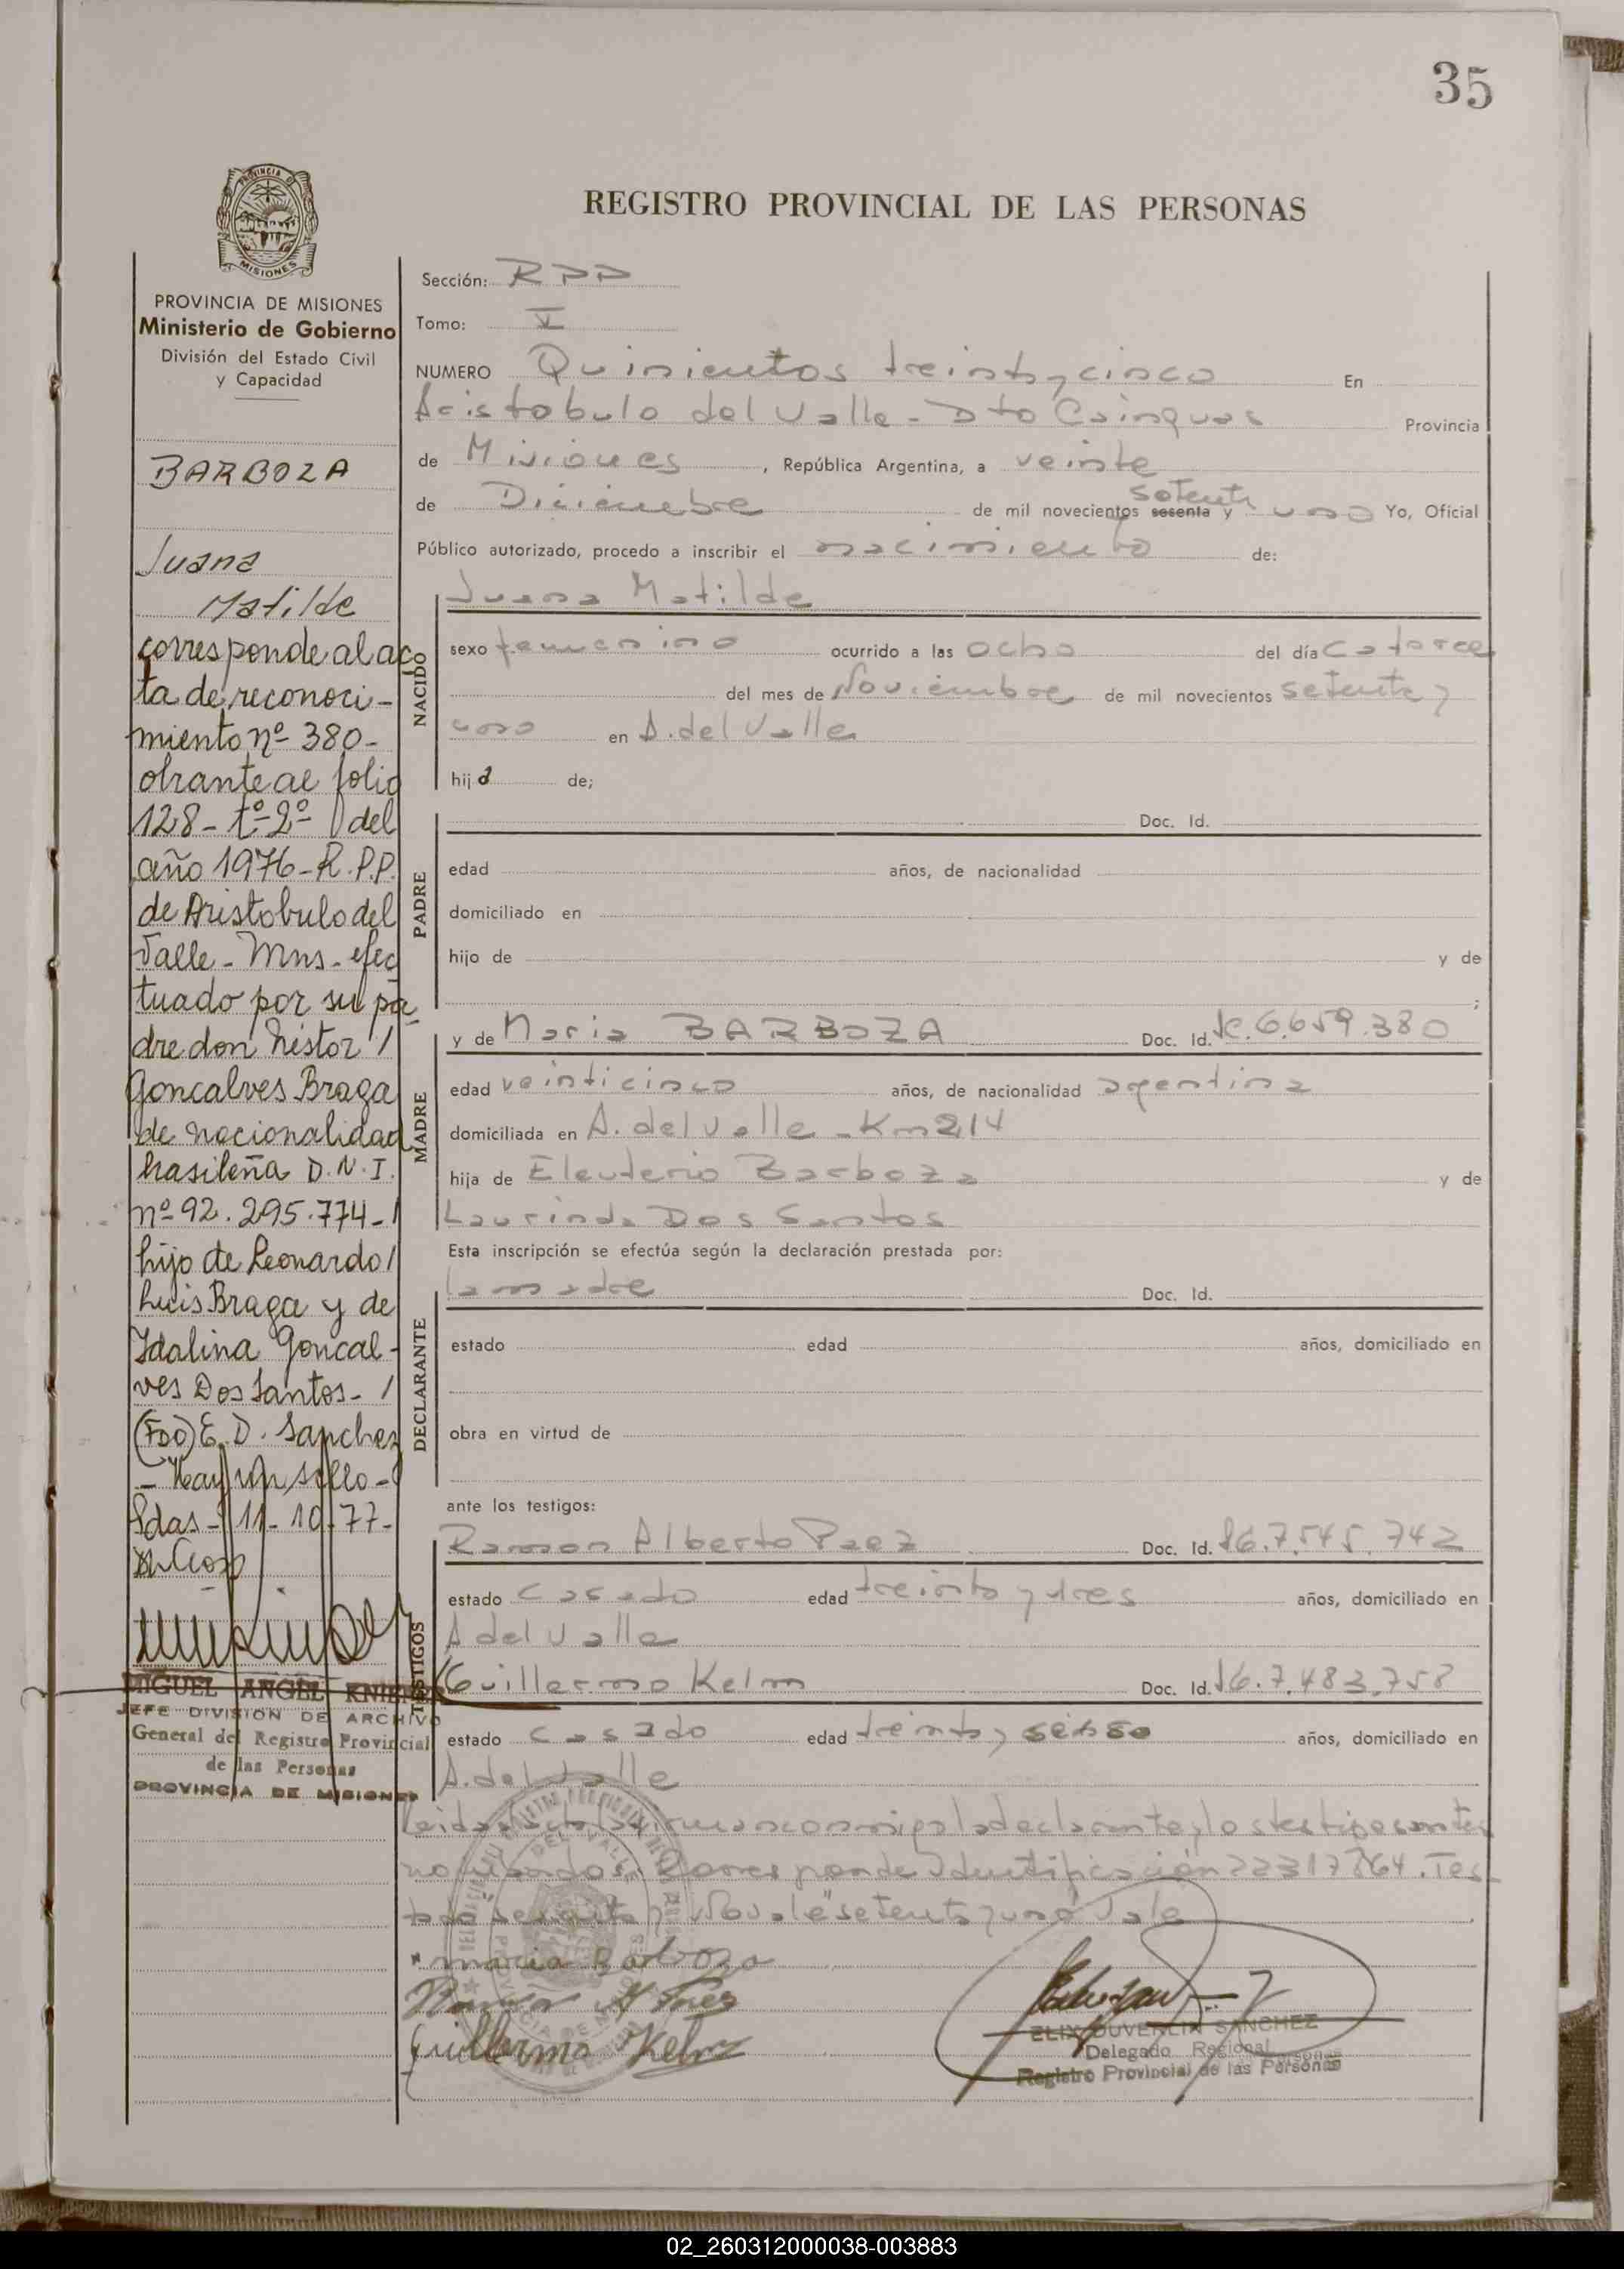 35
PROVINCIA DE MISIONES
REGISTRO PROVINCIAL DE LAS PERSONAS
PROVINCIA DE MISIONES
Ministerio de Gobierno
División del Estado Civil
y Capacidad
BARBOZA
Juana
Matilde
corresponde al ac
ta de reconoci-
miento nº 380-
obrante al folio
128- tº 2º del
año 1976- R.P.P.
de Aristobulo del
Valle- Mns- efec
tuado por su pa
dre don Nestor /
Goncalves Braga
de nacionalidad
brasileña D.N.I.
nº 92.295.774-/
hijo de Leonardo /
Luis Braga y de
Idalina Goncal-
ves Dos Santos- /
(FDO) E. D. Sanchez
- Hay un sello-
Pdas- 11- 10- 77-
MIGUEL ANGEL
JEFE DIVISION DE ARCHIVO
General del Registro Provincial
de las Personas
PROVINCIA DE MISIONES
Sección: RPP
Tomo: V
NUMERO Quinientos treinta y cinco En
Aristobulo del Valle - Dto Cainguas Provincia
de Misiones, República Argentina, a veinte
de Diciembre de mil novecientos sesenta y setenta uno Yo, Oficial
Público autorizado, procedo a inscribir el nacimiento de:
NACIDO
Juana Matilde
sexo femenino ocurrido a las ocho del día catorce
del mes de Noviembre de mil novecientos setenta y
uno en A. del Valle
hija de;
PADRE
Doc. Id.
edad años, de nacionalidad
domiciliado en
hijo de y de
;
MADRE
y de Maria BARBOZA Doc. Id. 6.659.380
edad veinticinco años, de nacionalidad argentina
domiciliada en A. del Valle - Km 214
hija de Eleuterio Barboza y de
Laurinda Dos Santos
Esta inscripción se efectúa según la declaración prestada por:
DECLARANTE
la madre Doc. Id.
estado edad años, domiciliado en
obra en virtud de
ante los testigos:
TESTIGOS
Ramon Alberto Paez Doc. Id. 7.545.742
estado casado edad treinta y tres años, domiciliado en
A del Valle
Guillermo Kelm Doc. Id. 7.483.758
estado casado edad treinta y años, domiciliado en
A. del Valle
Leida el acta la firman conmigo la declarante y los testigos antes
Corresponde Identificación 22317864. Tes
"setenta y uno" Vale
maria Barboza
Ramon A Paez
Guillermo Kelm
SANCHEZ
Delegado Regional
Registro Provincial de las Personas
02_260312000038-003883